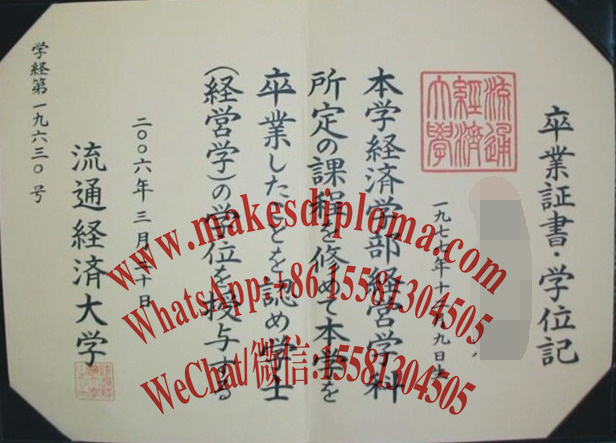 卒業証書・学位記
流通
経済
大學
一九七七年十
九日生
本学経済学部経営学科
所定の課程を修めて本学を
卒業したことを認め学士
(経営学)の学位を授与する
二〇〇六年三月二十日
流通経済大学
学経第一九六三〇号
www.makesdiploma.com
WhatsApp:+86 15581304505
WeChat/微信:15581304505